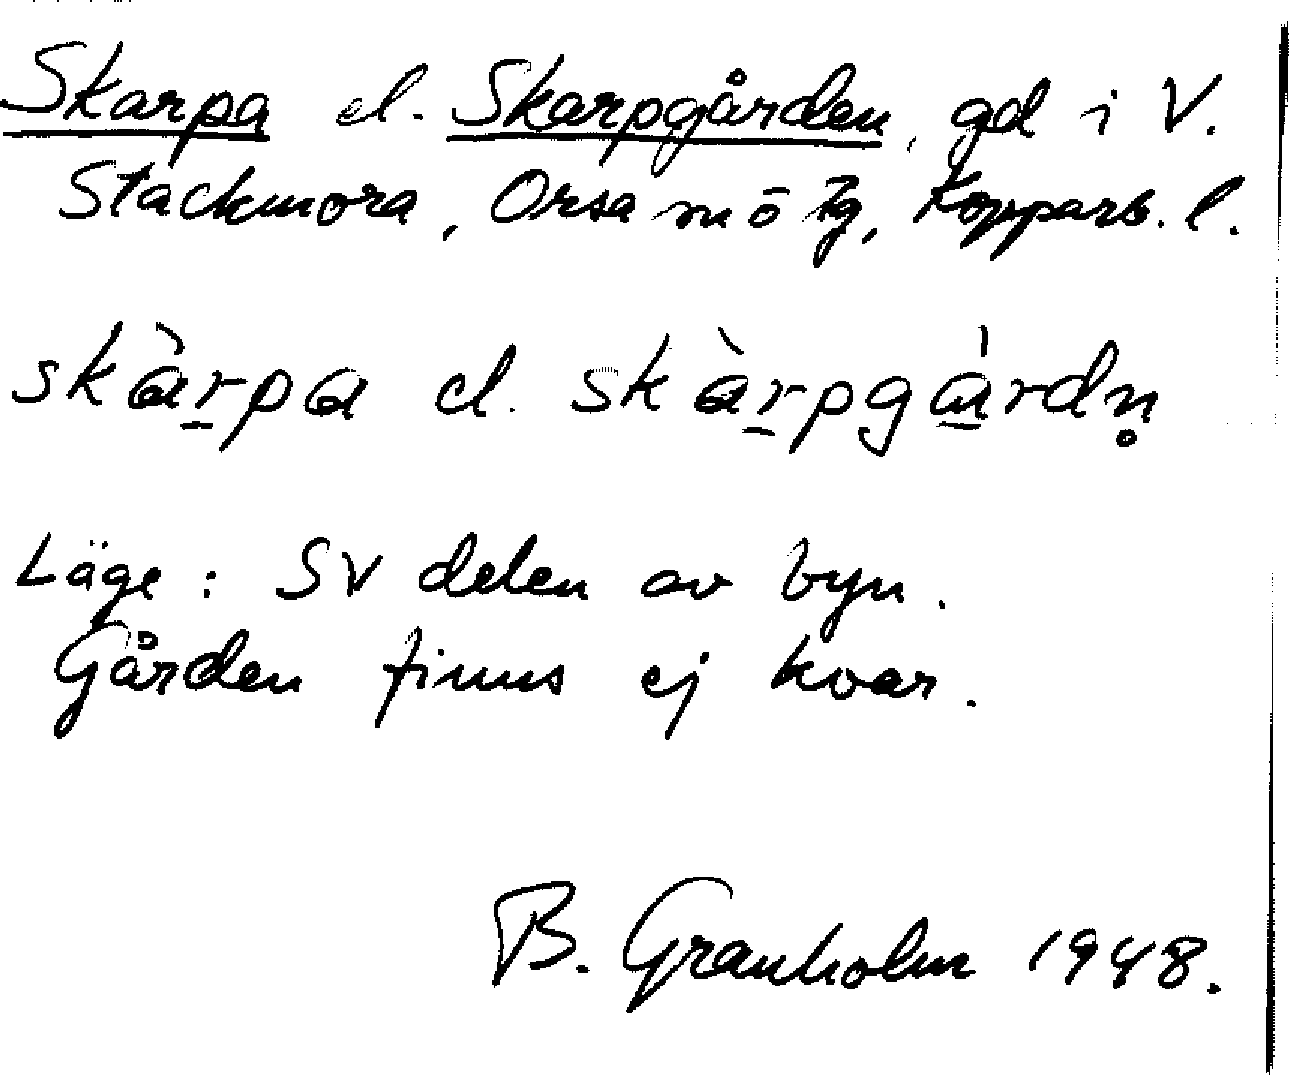 Skarpa el. Skarpgården, gd i V.
Stackmora, Orsa sn o tg, Kopparb. l.
skàrpa el. skàrpgárdn̥
Läge: SV delen av byn.
Gården finns ej kvar.
B. Granholm 1948.